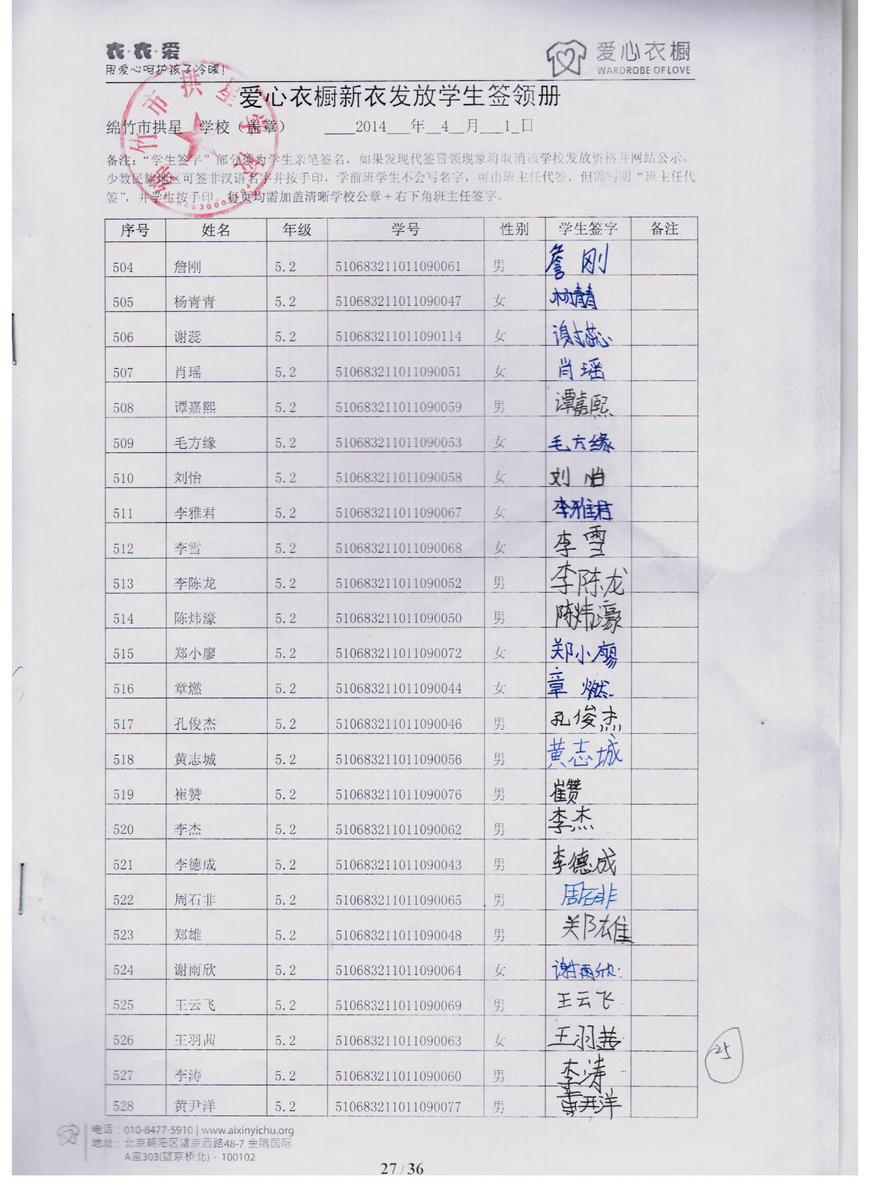 衣·衣·爱
用爱心呵护孩子冷暖!
爱心衣橱
WARDROBE OF LOVE
爱心衣橱新衣发放学生签领册
绵竹市拱星 学校(盖章) 2014 年 4 月 1 日
备注:“学生签字”部分须为学生亲笔签名,如果发现代签冒领现象将取消该学校发放资格并网站公示。
少数民族地区可签非汉语名字并按手印,学前班学生不会写名字,可由班主任代签,但需写明“班主任代
签”,并学生按手印。每页均需加盖清晰学校公章+右下角班主任签字。
序号 姓名 年级 学号 性别 学生签字 备注
504 詹刚 5.2 510683211011090061 男 詹刚
505 杨青青 5.2 510683211011090047 女 杨青青
506 谢蕊 5.2 510683211011090114 女 谢蕊
507 肖瑶 5.2 510683211011090051 女 肖瑶
508 谭嘉熙 5.2 510683211011090059 男 谭嘉熙
509 毛方缘 5.2 510683211011090053 女 毛方缘
510 刘怡 5.2 510683211011090058 女 刘怡
511 李雅君 5.2 510683211011090067 女 李雅君
512 李雪 5.2 510683211011090068 女 李雪
513 李陈龙 5.2 510683211011090052 男 李陈龙
514 陈炜濠 5.2 510683211011090050 男 陈炜濠
515 郑小廖 5.2 510683211011090072 女 郑小廖
516 章燃 5.2 510683211011090044 女 章燃
517 孔俊杰 5.2 510683211011090046 男 孔俊杰
518 黄志城 5.2 510683211011090056 男 黄志城
519 崔赞 5.2 510683211011090076 男 崔赞
520 李杰 5.2 510683211011090062 男 李杰
521 李德成 5.2 510683211011090043 男 李德成
522 周石非 5.2 510683211011090065 男 周石非
523 郑雄 5.2 510683211011090048 男 郑雄
524 谢雨欣 5.2 510683211011090064 女 谢雨欣
525 王云飞 5.2 510683211011090069 男 王云飞
526 王羽茜 5.2 510683211011090063 女 王羽茜
527 李涛 5.2 510683211011090060 男 李涛
528 黄尹洋 5.2 510683211011090077 男 黄尹洋
25
电话:010-8477-5910 | www.aixinyichu.org
地址:北京朝阳区望京西路48-7 金隅国际
A座303(望京桥北)·100102
27 / 36